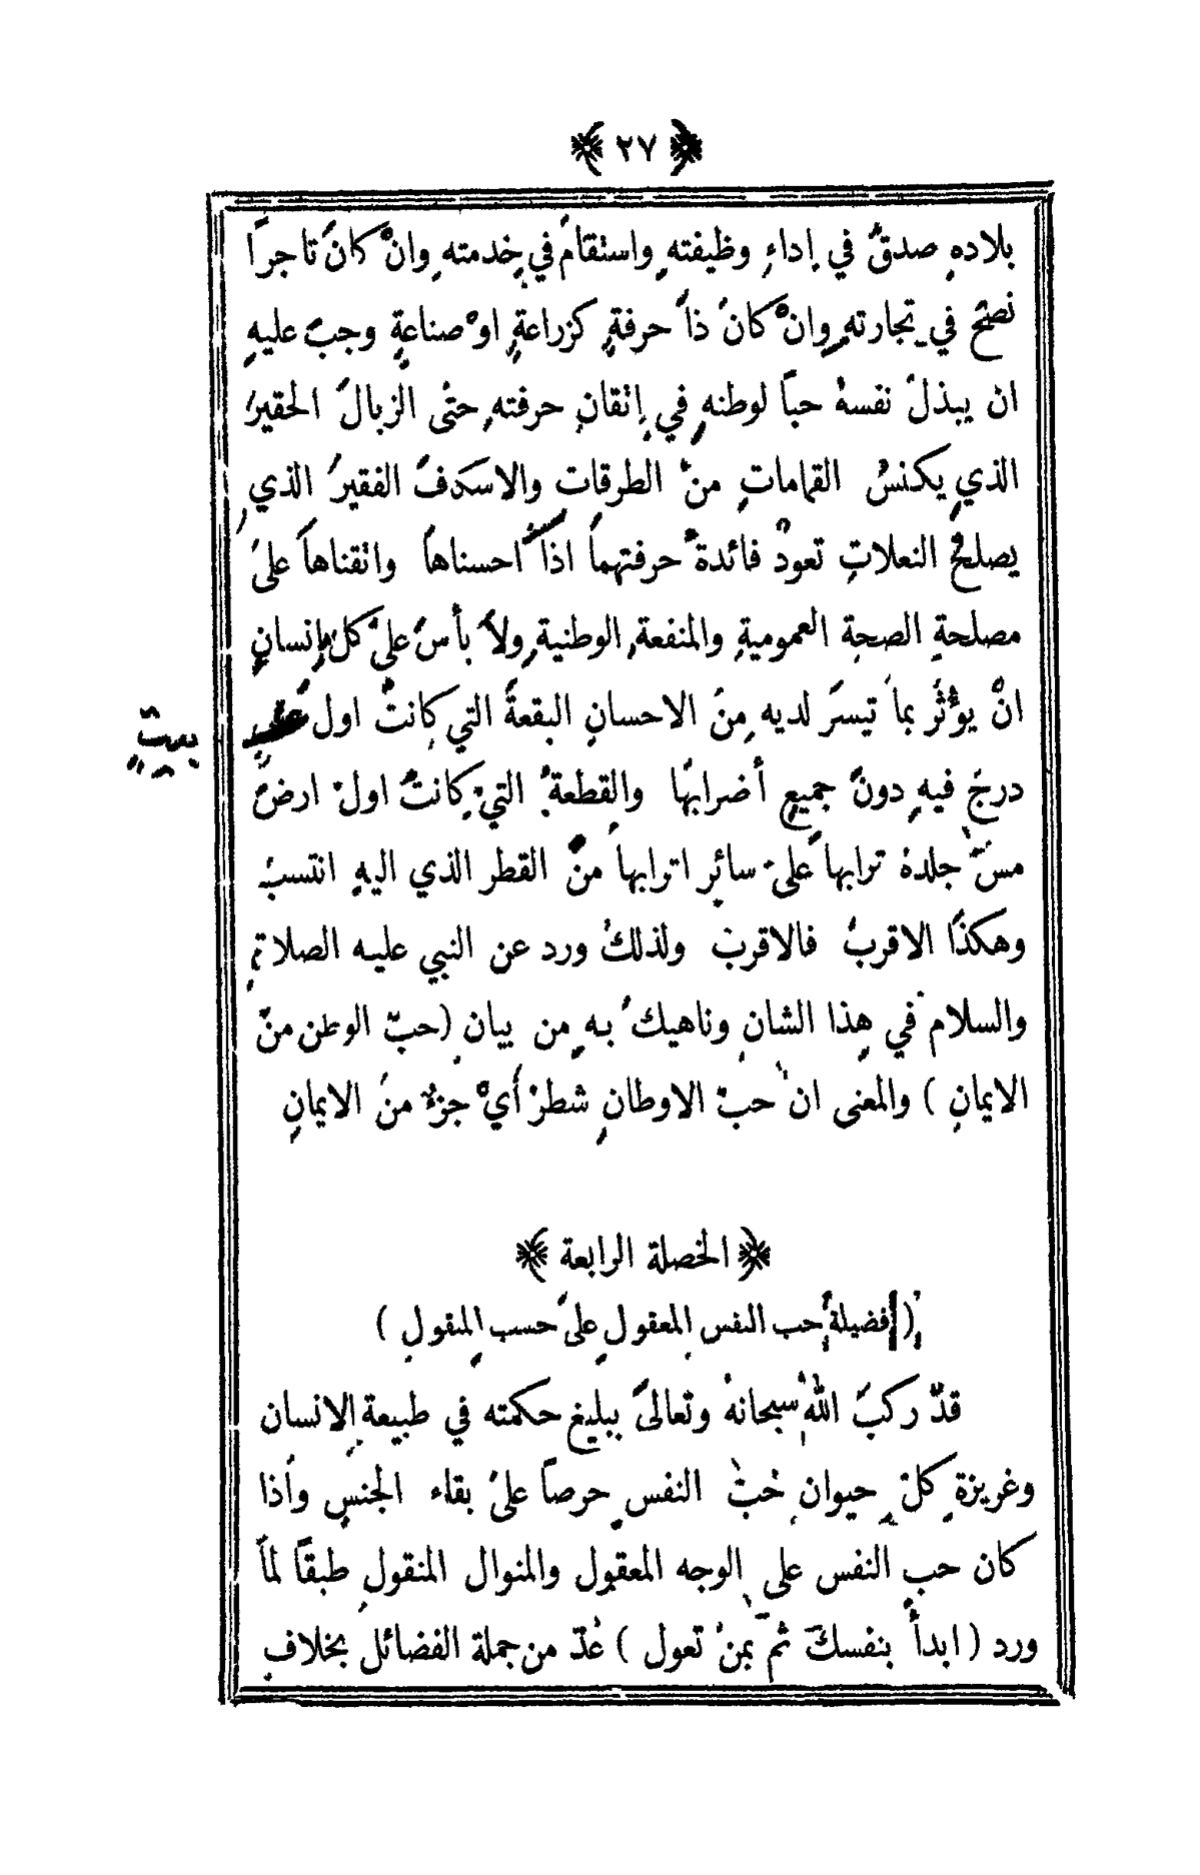 ﴿ ٢٧ ﴾
بلاده صدق في إداء وظيفته واستقام في خدمته وان كان تاجرا
نصح في تجارته وان كان ذا حرفة كزراعة او صناعة وجب عليه
ان يبذل نفسه حبا لوطنه في إتقان حرفته حتى الزبال الحقير
الذي يكنس القمامات من الطرقات والاسكف الفقير الذي
يصلح النعلات تعود فائدة حرفتهما اذا احسناها واتقناها على
مصلحة الصحة العمومية والمنفعة الوطنية ولا بأس على كل إنسان
ان يؤثر بما تيسر لديه من الاحسان البقعة التي كانت اول
بيت
درج فيه دون جميع أضرابها والقطعة التي كانت اول ارض
مس جلده ترابها على سائر اترابها من القطر الذي اليه انتسب
وهكذا الاقرب فالاقرب ولذلك ورد عن النبي عليه الصلاة
والسلام في هذا الشان وناهيك به من بيان (حب الوطن من
الايمان ) والمعنى ان حب الاوطان شطر أي جزء من الايمان
﴿ الخصلة الرابعة ﴾
( فضيلة حب النفس المعقول على حسب المنقول )
قد ركب الله سبحانه وتعالى ببليغ حكمته في طبيعة الانسان
وغريزة كل حيوان حب النفس حرصا على بقاء الجنس واذا
كان حب النفس على الوجه المعقول والمنوال المنقول طبقا لما
ورد ( ابدأ بنفسك ثم بمن تعول ) عد من جملة الفضائل بخلاف